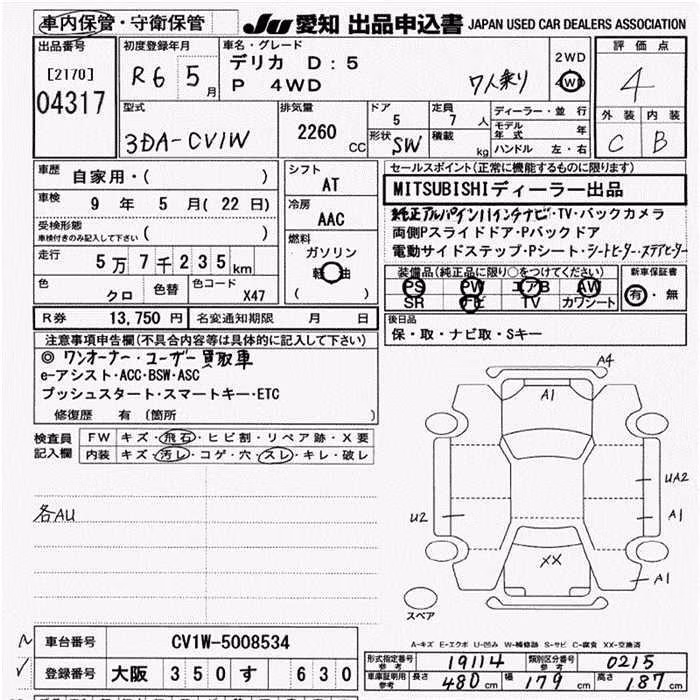 車内保管・守衛保管 JU 愛知 出品申込書 JAPAN USED CAR DEALERS ASSOCIATION
出品番号 初度登録年月 車名・グレード 評価点
[2170] R6 5月 デリカ D:5 2WD
04317 P 4WD 7人乗り 4WD 4
型式 排気量 ドア 定員 ディーラー・並行 外装 内装
3DA-CV1W 2260 CC 5 7 人 モデル年式 年
形状 SW 積載 kg ハンドル 左・右 C B
車歴 自家用・( ) シフト AT セールスポイント(正常に機能するものに限ります)
車検 9 年 5 月( 22 日) 冷房 AAC MITSUBISHIディーラー出品
受検形態 車検付きのみ記入して下さい ( ) 燃料 純正アルパイン11インチナビ・TV・バックカメラ
ガソリン 両側Pスライドドア・Pバックドア
走行 5万7千235km 軽油 電動サイドステップ・Pシート・シートヒーター・ステアヒーター
( ) 装備品(純正品に限り○をつけてください) 新車保証書
色 クロ 色替 色コード X47 PS PW エアB AW 有・無
SR ナビ TV カワシート
R券 13,750 円 名変通知期限 月 日 後日品
注意事項申告欄(不具合内容等は具体的に記入して下さい) 保・取・ナビ取・Sキー
◎ ワンオーナー・ユーザー買取車
e-アシスト・ACC・BSW・ASC
プッシュスタート・スマートキー・ETC
修復歴 有 (箇所 )
検査員記入欄 FW キズ・飛石・ヒビ割・リペア跡・X要
内装 キズ・汚レ・コゲ・穴・スレ・キレ・破レ
各AU
A4
A1
UA2
U2
A1
XX
A1
スペア
A-キズ E-エクボ U-凹み W-補修跡 S-サビ C-腐食 XX-交換済
車台番号 CV1W-5008534
形式指定番号 参考 19114 類別区分番号 参考 0215
登録番号 大阪 350 す 630
車庫証明用 参考 長さ 480 cm 幅 179 cm 高さ 187 cm